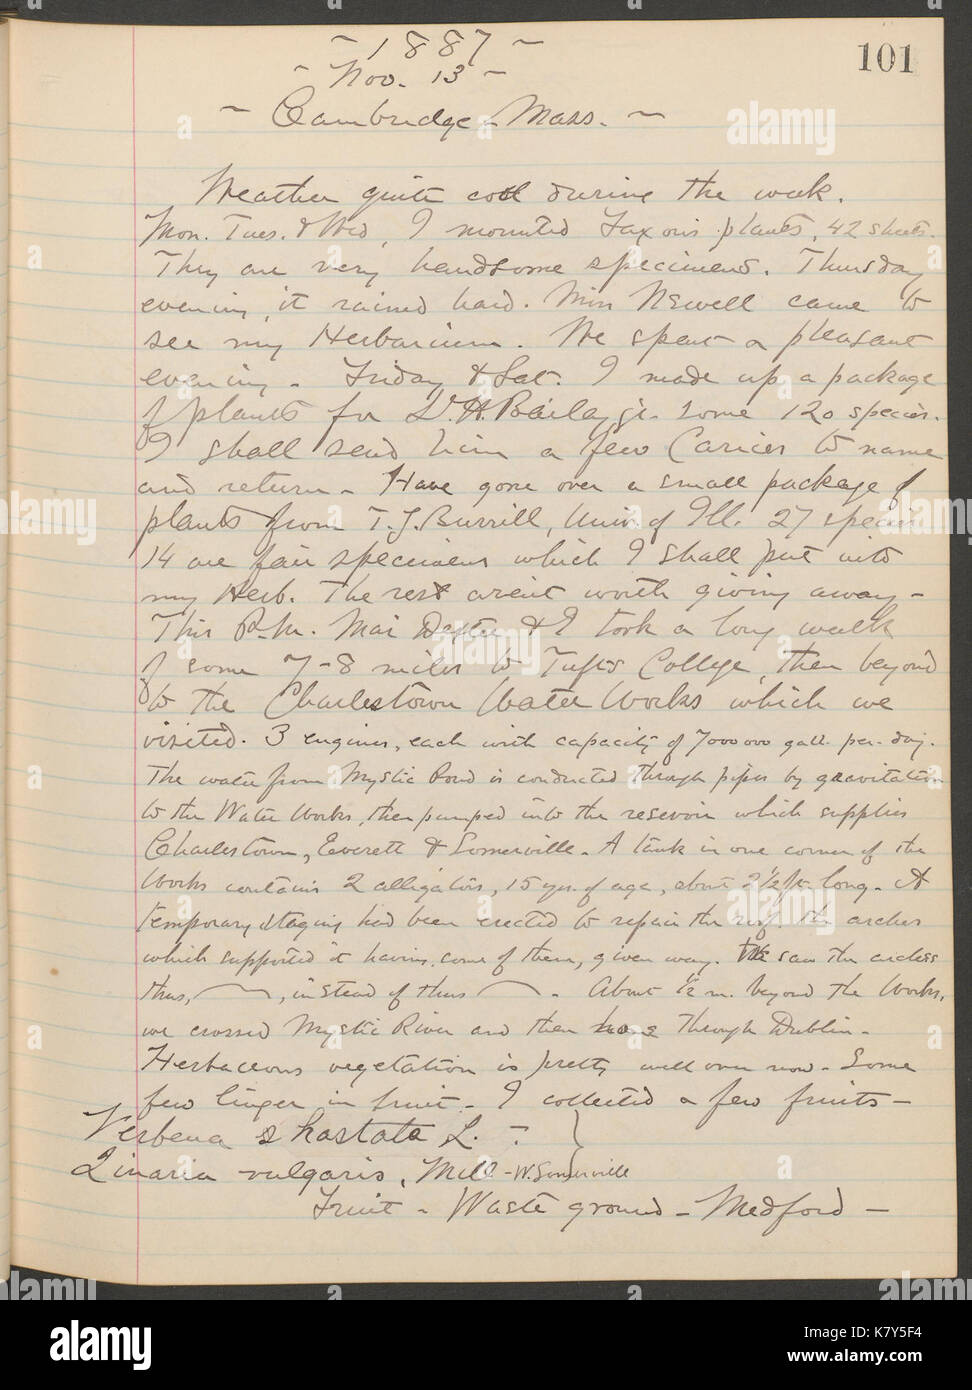 101
~ 1887 ~
~ Nov. 13 ~
~ Cambridge - Mass. ~
Weather quite cold during the week.
Mon. Tues. & Wed, I mounted Faxons plants, 42 sheets.
They are very handsome specimens. Thursday
evening, it rained hard. Miss Newell came to
see my Herbarium. We spent a pleasant
evening - Friday & Sat. I made up a package
of plants for L. H. Bailey jr. some 120 species.
I shall send him a few Carices to name
and return - Have gone over a small package of
plants from T. J. Burrill, Univ. of Ill. 27 species
14 are fair specimens which I shall put into
my Herb. The rest arent worth giving away -
This P.M. Dexter & I took a long walk
of some 7-8 miles to Tufts College, then beyond
to the Charlestown Water Works which we
visited. 3 engines, each with capacity of 7000000 gall. per. day.
The water from Mystic Pond is conducted through pipes by gravitation
to the Water Works, then pumped into the reservoir which supplies
Charlestown, Everett & Somerville - A tank in one corner of the
Works contains 2 alligators, 15 yrs. of age, about 2½ ft. long - A
temporary staging had been erected to repair the roof. the arches
which supported it having, some of them, given way. We saw the arches
thus, , instead of thus . About ½ m. beyond the Works,
we crossed Mystic River and then home through Dublin -
Herbaceous vegetation is pretty well over now - Some
few linger in fruit - I collected a few fruits -
Verbena hastata L. -
Linaria vulgaris, Mill - W. Somerville
Fruit - Waste ground - Medford -
alamy
a
alamy stock photo
alamy
Image ID: K7Y5F4
www.alamy.com